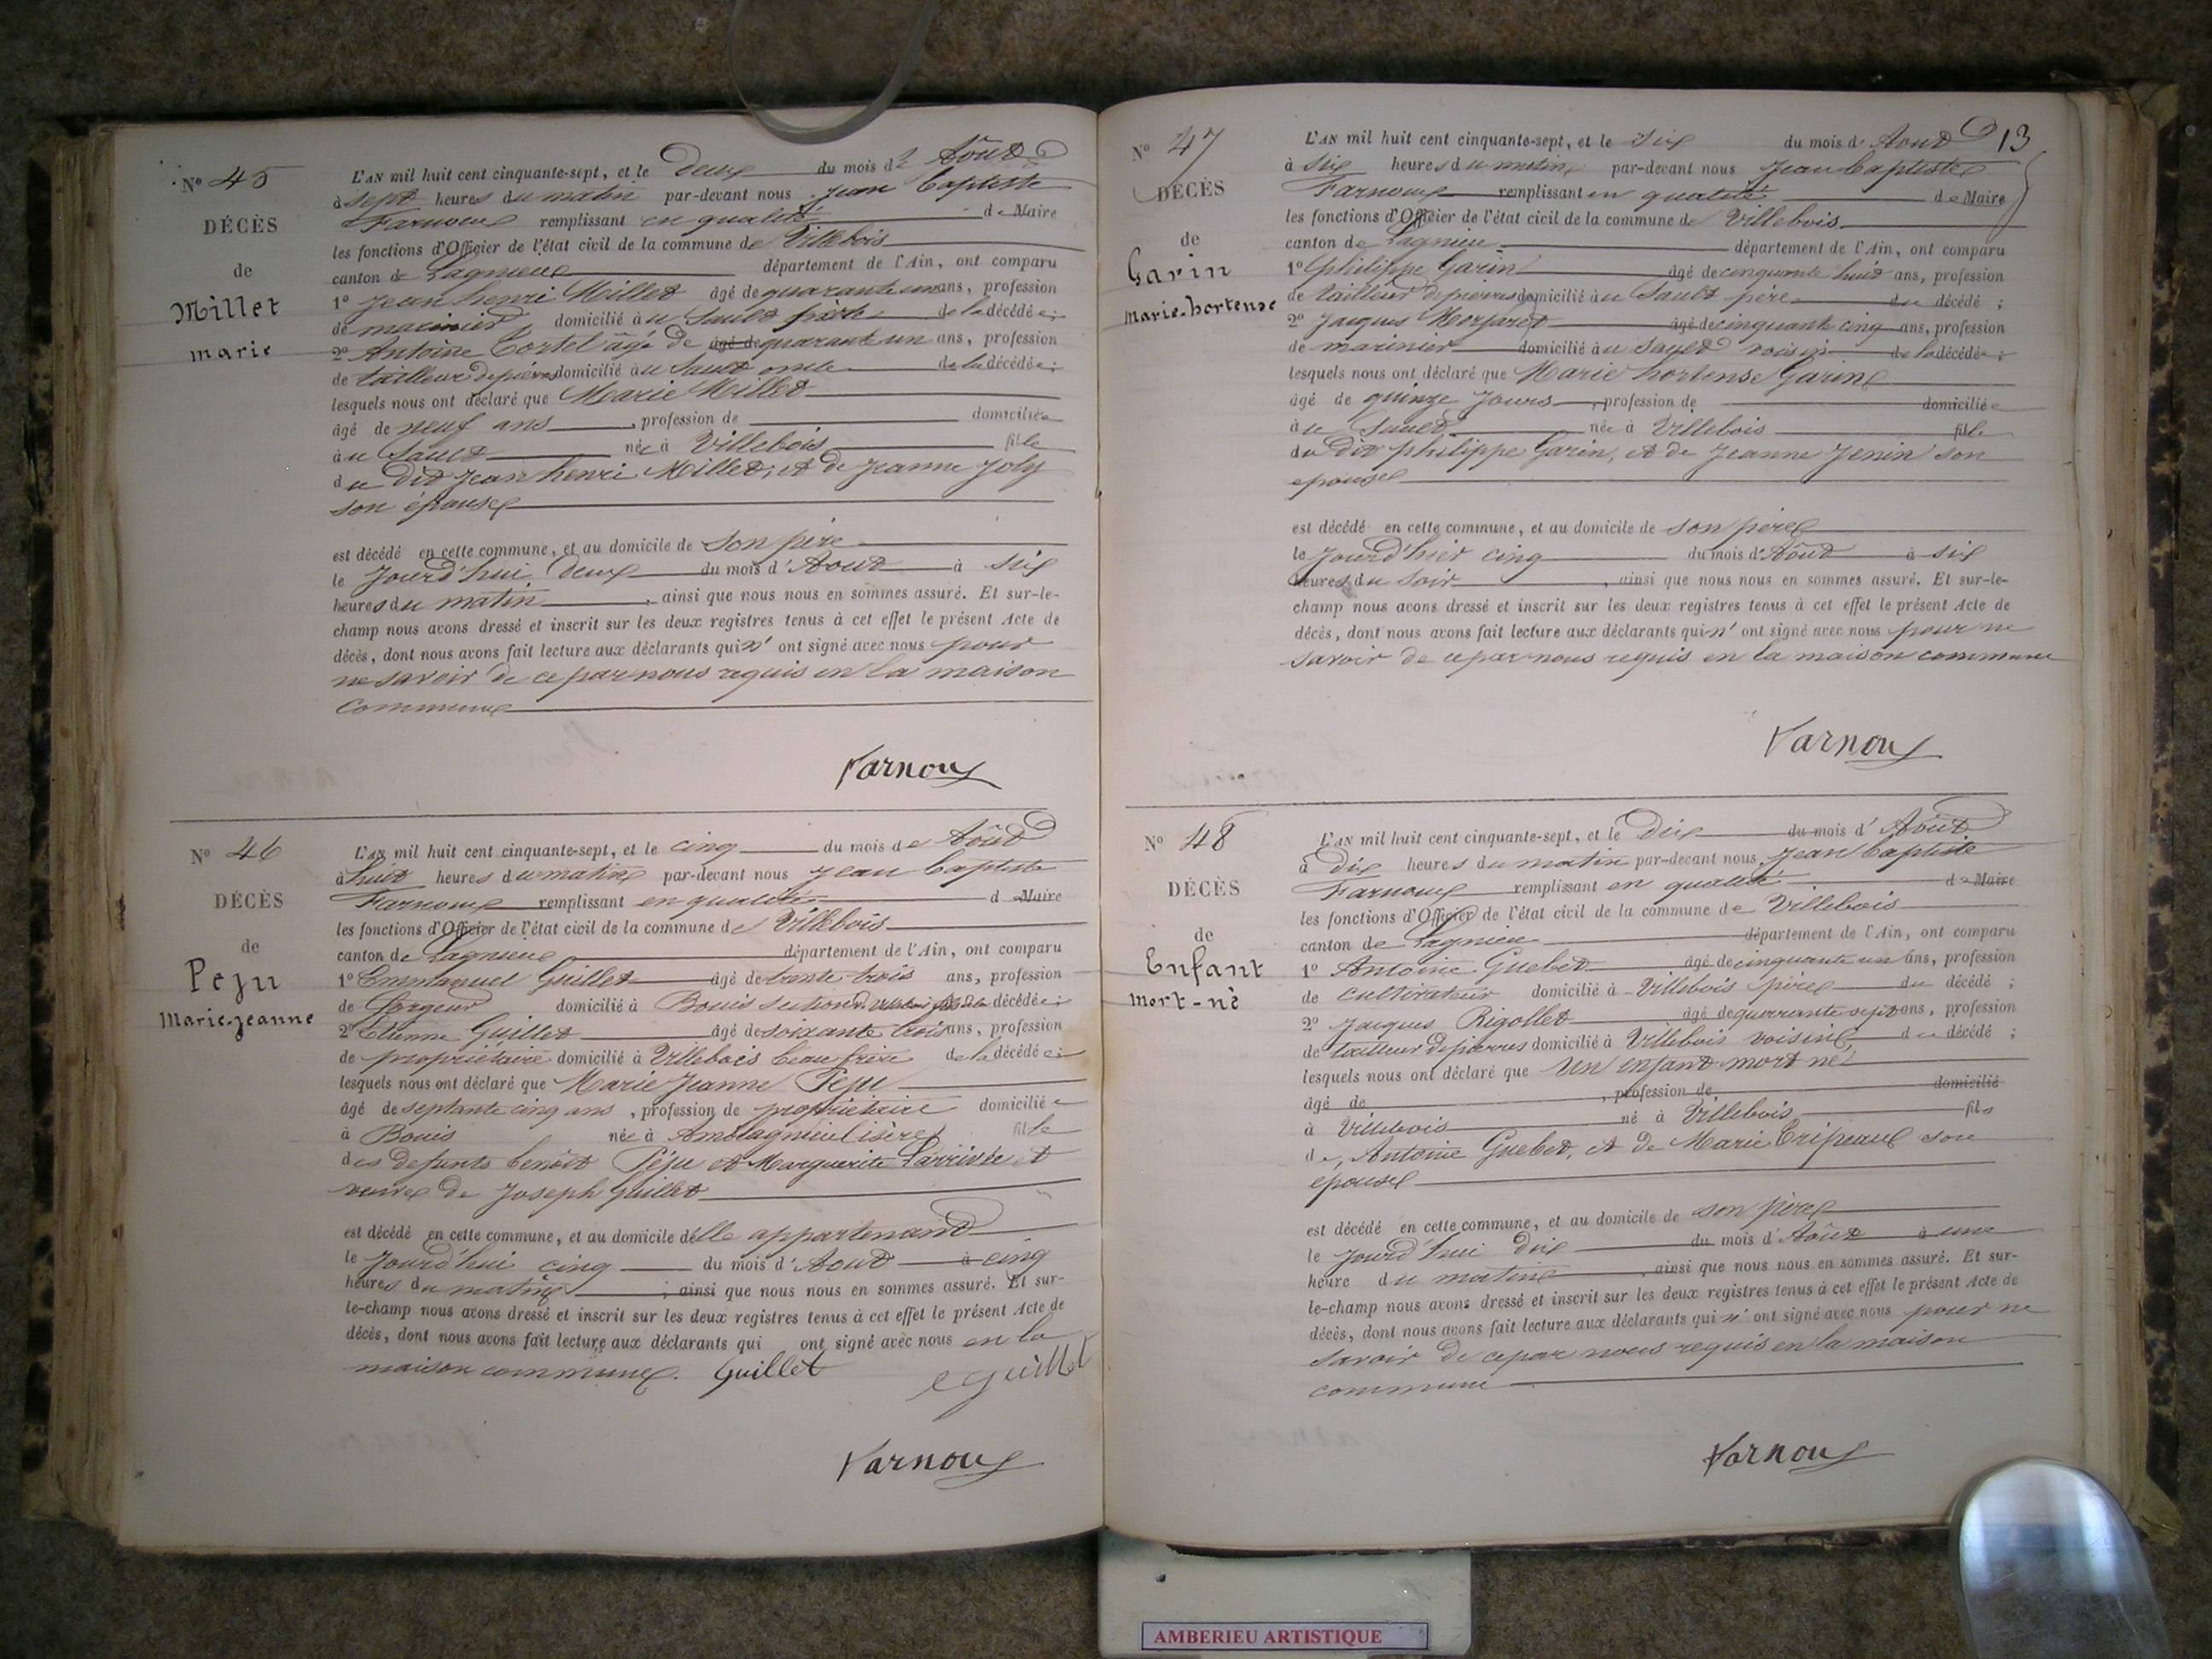 No 45
DÉCÈS
de
Millet
marie
L'AN mil huit cent cinquante-sept, et le deux du mois d' Août
à sept heures du matin par-devant nous Jean baptiste
Farnoux remplissant en qualité de Maire
les fonctions d'Officier de l'état civil de la commune de Villebois
canton de Lagnieu département de l'Ain, ont comparu
1o Jean henri Millet âgé de quarante un ans, profession
de marinier domicilié au Sault père de la décédée ;
2o Antoine Cortel âgé de âgé de quarant un ans, profession
de tailleur de pierres domicilié au Sault oncle de la décédée ;
lesquels nous ont déclaré que Marie Millet
âgé de neuf ans , profession de domiciliée
au Sault née à Villebois fille
du dit Jean henri Millet, et de Jeanne Joly
son épouse
est décédé en cette commune, et au domicile de son père
le Jourd'hui deux du mois d' Aout à six
heures du matin , ainsi que nous nous en sommes assuré. Et sur-le-
champ nous avons dressé et inscrit sur les deux registres tenus à cet effet le présent Acte de
décès, dont nous avons fait lecture aux déclarants qui n' ont signé avec nous pour
ne savoir de ce par nous requis en la maison
commune
Farnoux
No 46
DÉCÈS
de
Peju
Marie-jeanne
L'AN mil huit cent cinquante-sept, et le cinq du mois de Août
à huit heures du matin par-devant nous Jean baptiste
Farnoux remplissant en qualité de Maire
les fonctions d'Officier de l'état civil de la commune de Villebois
canton de Lagnieu département de l'Ain, ont comparu
1o Emmanuel Guillet âgé de trente trois ans, profession
de forgeur domicilié à Bouis de la décédée ;
2o Etienne Guillet âgé de soixante trois ans, profession
de propriétaire domicilié à Villebois beau frère de la décédée ;
lesquels nous ont déclaré que Marie Jeanne Péju
âgé de septante cinq ans , profession de propriétaire domiciliée
à Bouis née à Amblagnieu isère fille
des defunts benoit Péju et Marguerite et
veuve de Joseph Guillet
est décédé en cette commune, et au domicile d'elle appartenant
le Jourd'hui cinq du mois d' Aout à cinq
heures du matin ; ainsi que nous nous en sommes assuré. Et sur-
le-champ nous avons dressé et inscrit sur les deux registres tenus à cet effet le présent Acte de
décès, dont nous avons fait lecture aux déclarants qui ont signé avec nous en la
maison commune. Guillet eguillet
Farnoux
13
No 47
DÉCÈS
de
Garin
marie-hortense
L'AN mil huit cent cinquante-sept, et le six du mois d' Aout
à six heures du matin par-devant nous Jean baptiste
Farnoux remplissant en qualité de Maire
les fonctions d'Officier de l'état civil de la commune de Villebois
canton de Lagnieu département de l'Ain, ont comparu
1o philippe Garin âgé de cinquante huit ans, profession
de tailleur de pierres domicilié au Sault père du décédé ;
2o Jacques âgé de cinquante cinq ans, profession
de marinier domicilié au Sault voisin de la décédée ;
lesquels nous ont déclaré que Marie hortense Garin
âgé de quinze Jours , profession de domiciliée
au Sault née à Villebois fille
du dit philippe Garin, et de Jeanne Jenin son
epouse
est décédé en cette commune, et au domicile de son père
le Jourd'hier cinq du mois d' Août à six
heures du soir , ainsi que nous nous en sommes assuré. Et sur-le-
champ nous avons dressé et inscrit sur les deux registres tenus à cet effet le présent Acte de
décès, dont nous avons fait lecture aux déclarants qui n' ont signé avec nous pour ne
savoir de ce par nous requis en la maison commune
Farnoux
No 48
DÉCÈS
de
Enfant
mort-né
L'AN mil huit cent cinquante-sept, et le dix du mois d' Août
à dix heures du matin par-devant nous Jean baptiste
Farnoux remplissant en qualité de Maire
les fonctions d'Officier de l'état civil de la commune de Villebois
canton de Lagnieu département de l'Ain, ont comparu
1o Antoine Guebet âgé de cinquante un ans, profession
de cultivateur domicilié à Villebois père du décédé ;
2o Jacques Rigollet âgé de quarrante sept ans, profession
de tailleur de pierres domicilié à Villebois voisin du décédé ;
lesquels nous ont déclaré que Un enfant mort né
âgé de , profession de domicilié
à Villebois né à Villebois fils
de, Antoine Guebet, et de Marie Tripeaul son
epouse
est décédé en cette commune, et au domicile de son père
le Jourd'hui dix du mois d' Août à une
heure du matin , ainsi que nous nous en sommes assuré. Et sur-
le-champ nous avons dressé et inscrit sur les deux registres tenus à cet effet le présent Acte de
décès, dont nous avons fait lecture aux déclarants qui n' ont signé avec nous pour ne
savoir de ce par nous requis en la maison
commune
Farnoux
AMBERIEU ARTISTIQUE